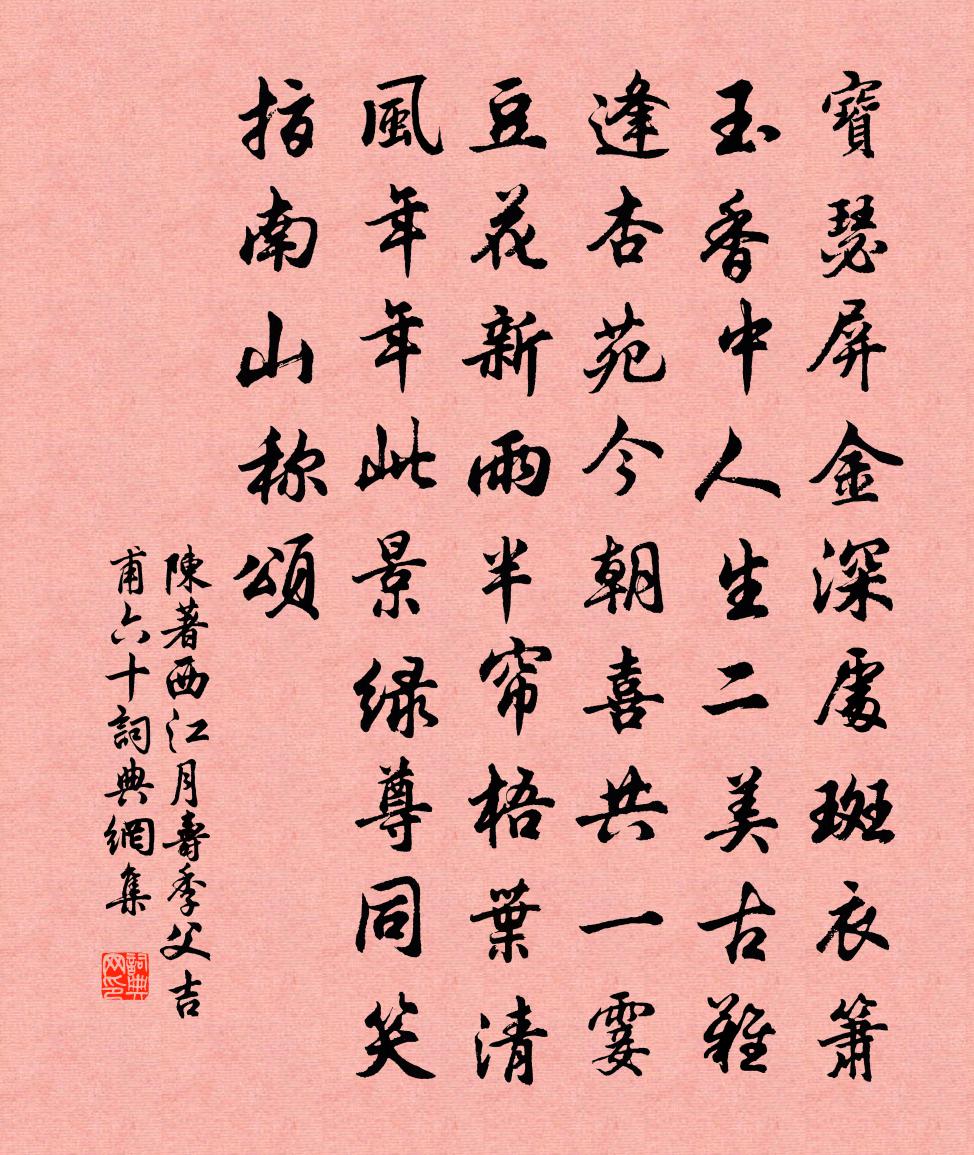 寶瑟屏金深處斑衣箫
玉香中人生二美古難
逢杏苑今朝喜共一霎
豆花新雨半帘梧葉清
風年年此景绿尊同笑
指南山称頌
陳著西江月壽季父吉
甫六十詞典網集
詞典网印